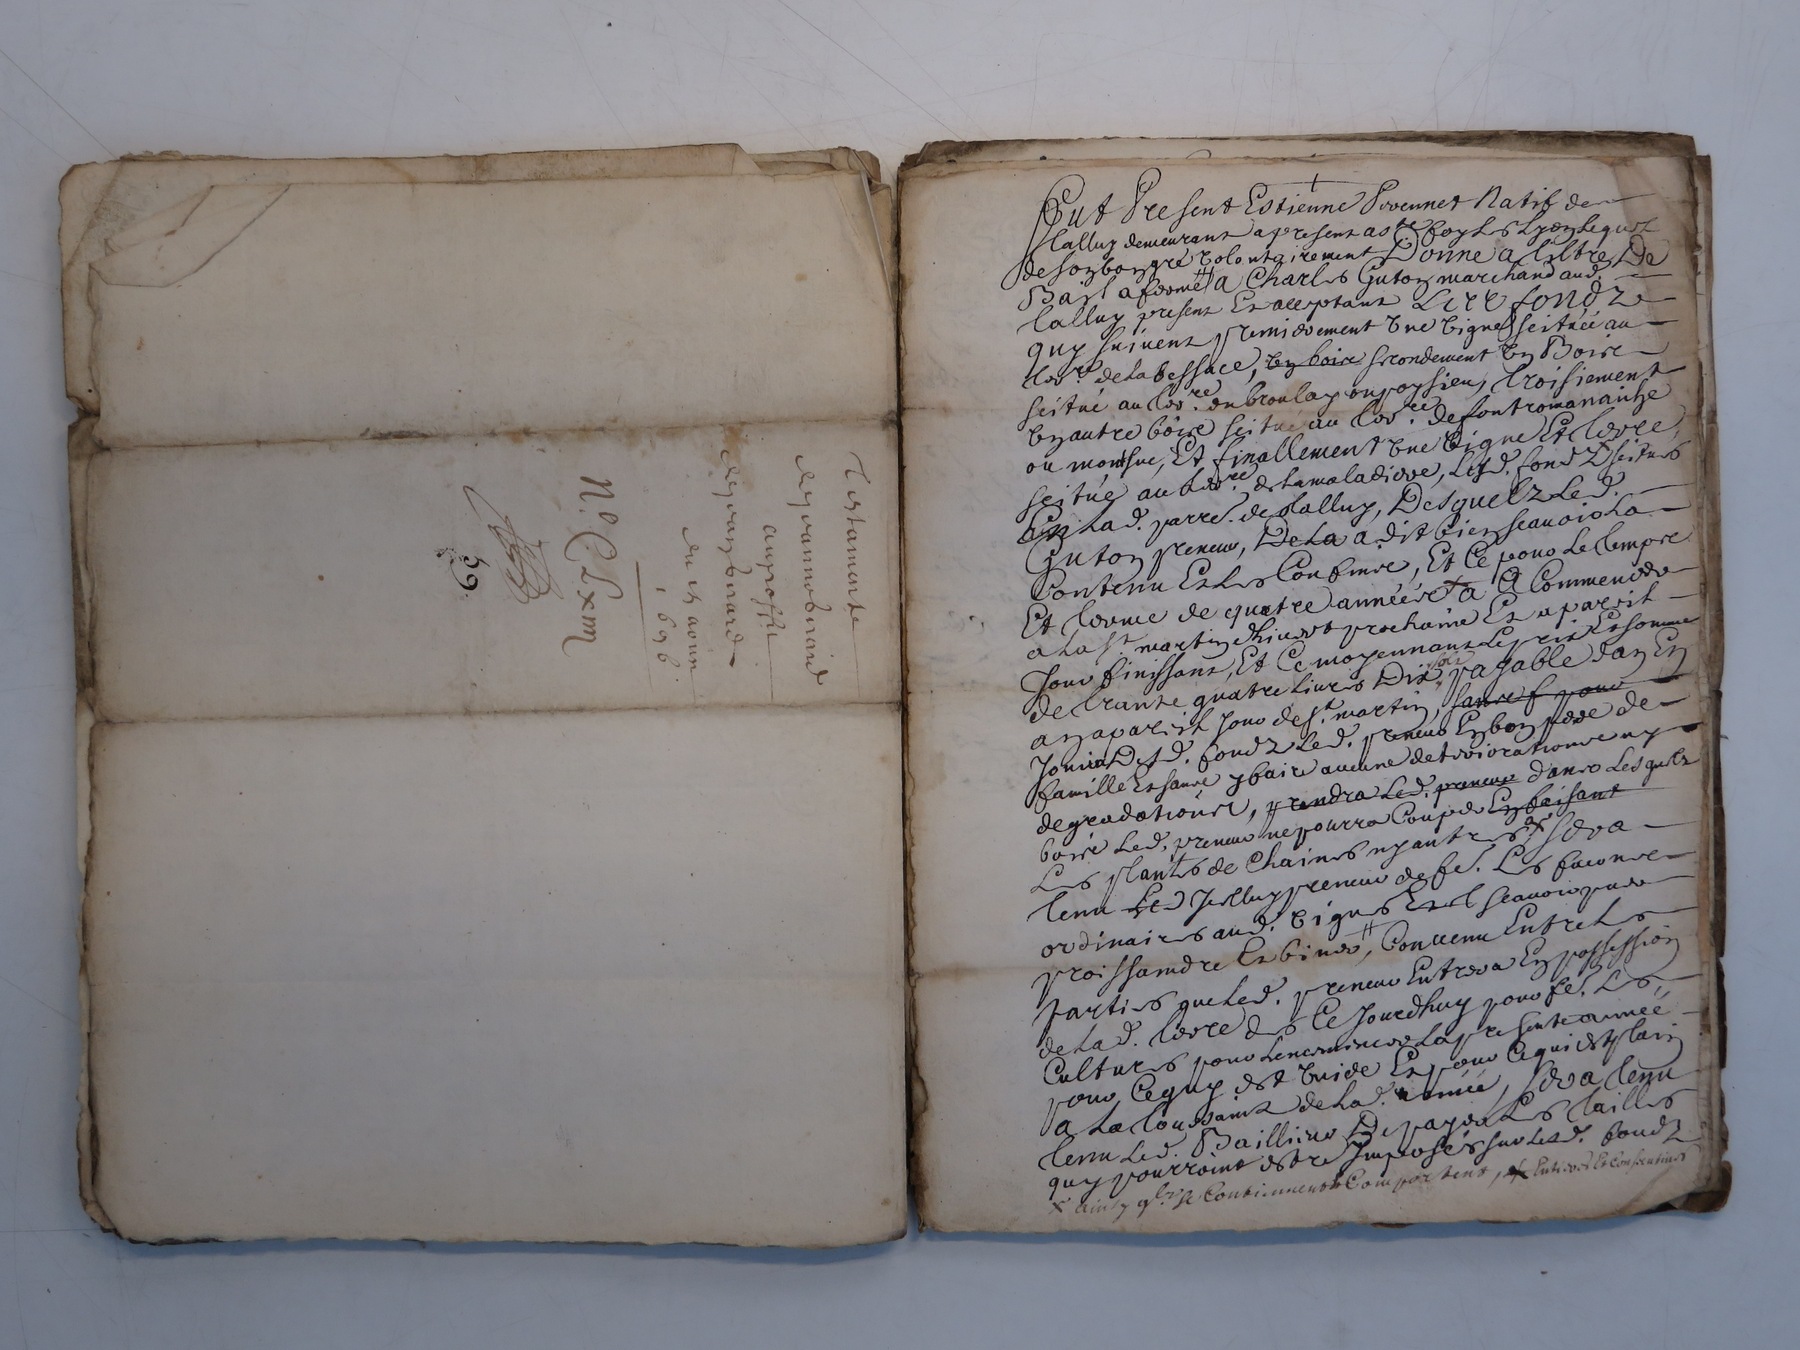 Testamente
du 15 avoust
1696
N.º C Lxiii
69
Fut Present Estienne Prvennet Natif de
Talluy demeurant a present a ste foy Les Lyon Lequel
de son bon gré volontairement Donne a tiltre De
Bail a ferme a Charles Guton marchand aud.
Talluy present Et acceptant Les fondz
quy suivent premierement une vigne scituée au
terr.re de la bessace, un bois secondement un Bois
scitué au terr.re du broulay ou poysieu, troisiement
un autre bois scitué au terr.re de fontromananche
ou montsue, Et finallement une vigne Et terre,
scitué au terr.re de la maladiere, Lesd. fondz scitués
En Lad. parre. de Talluy, Desquelz Led.
Guton preneur, De La a dit bien scauoir La
Contenu Et Les Confins, Et Ce pour Le temps
Et terme de quatre années a Commencer
a La St. martin d'hiuert prochaine Et a pareil
Jour finissant, Et Ce moyennant Le prix Et somme
de trante quatre Liures Dix solz payable d'an En
an a pareil Jour de St. martin, sauf pour
Jouira Desd. fondz Led. preneur En bon pere de
famille Et sans y faire aucune deteriorations ny
degradations, prendra Led. preneur dans Lesquelz
bois Led. preneur ne pourra Couper En faisant
Les plantes de Chaines ny autres sera
tenu Led preneur de fe. Les facons
ordinaires aud. vignes scauoir
Et biner, Convenu Entre Les
parties que Led. preneur Entrera En possession
de Lad. terre des Ce Jourdhuy pour fe. Les
Cultures pour L'encemencer La presente année
pour Ce quy est vuide Et pour Ce qui est plain
a La Toussaint de Lad. année, sera tenu
tenu Led. Bailleur De payer Les tailles
quy pourroint estre Imposés sur Lesd. fondz
x ainsy qlz se Contiennent Et Comportent,